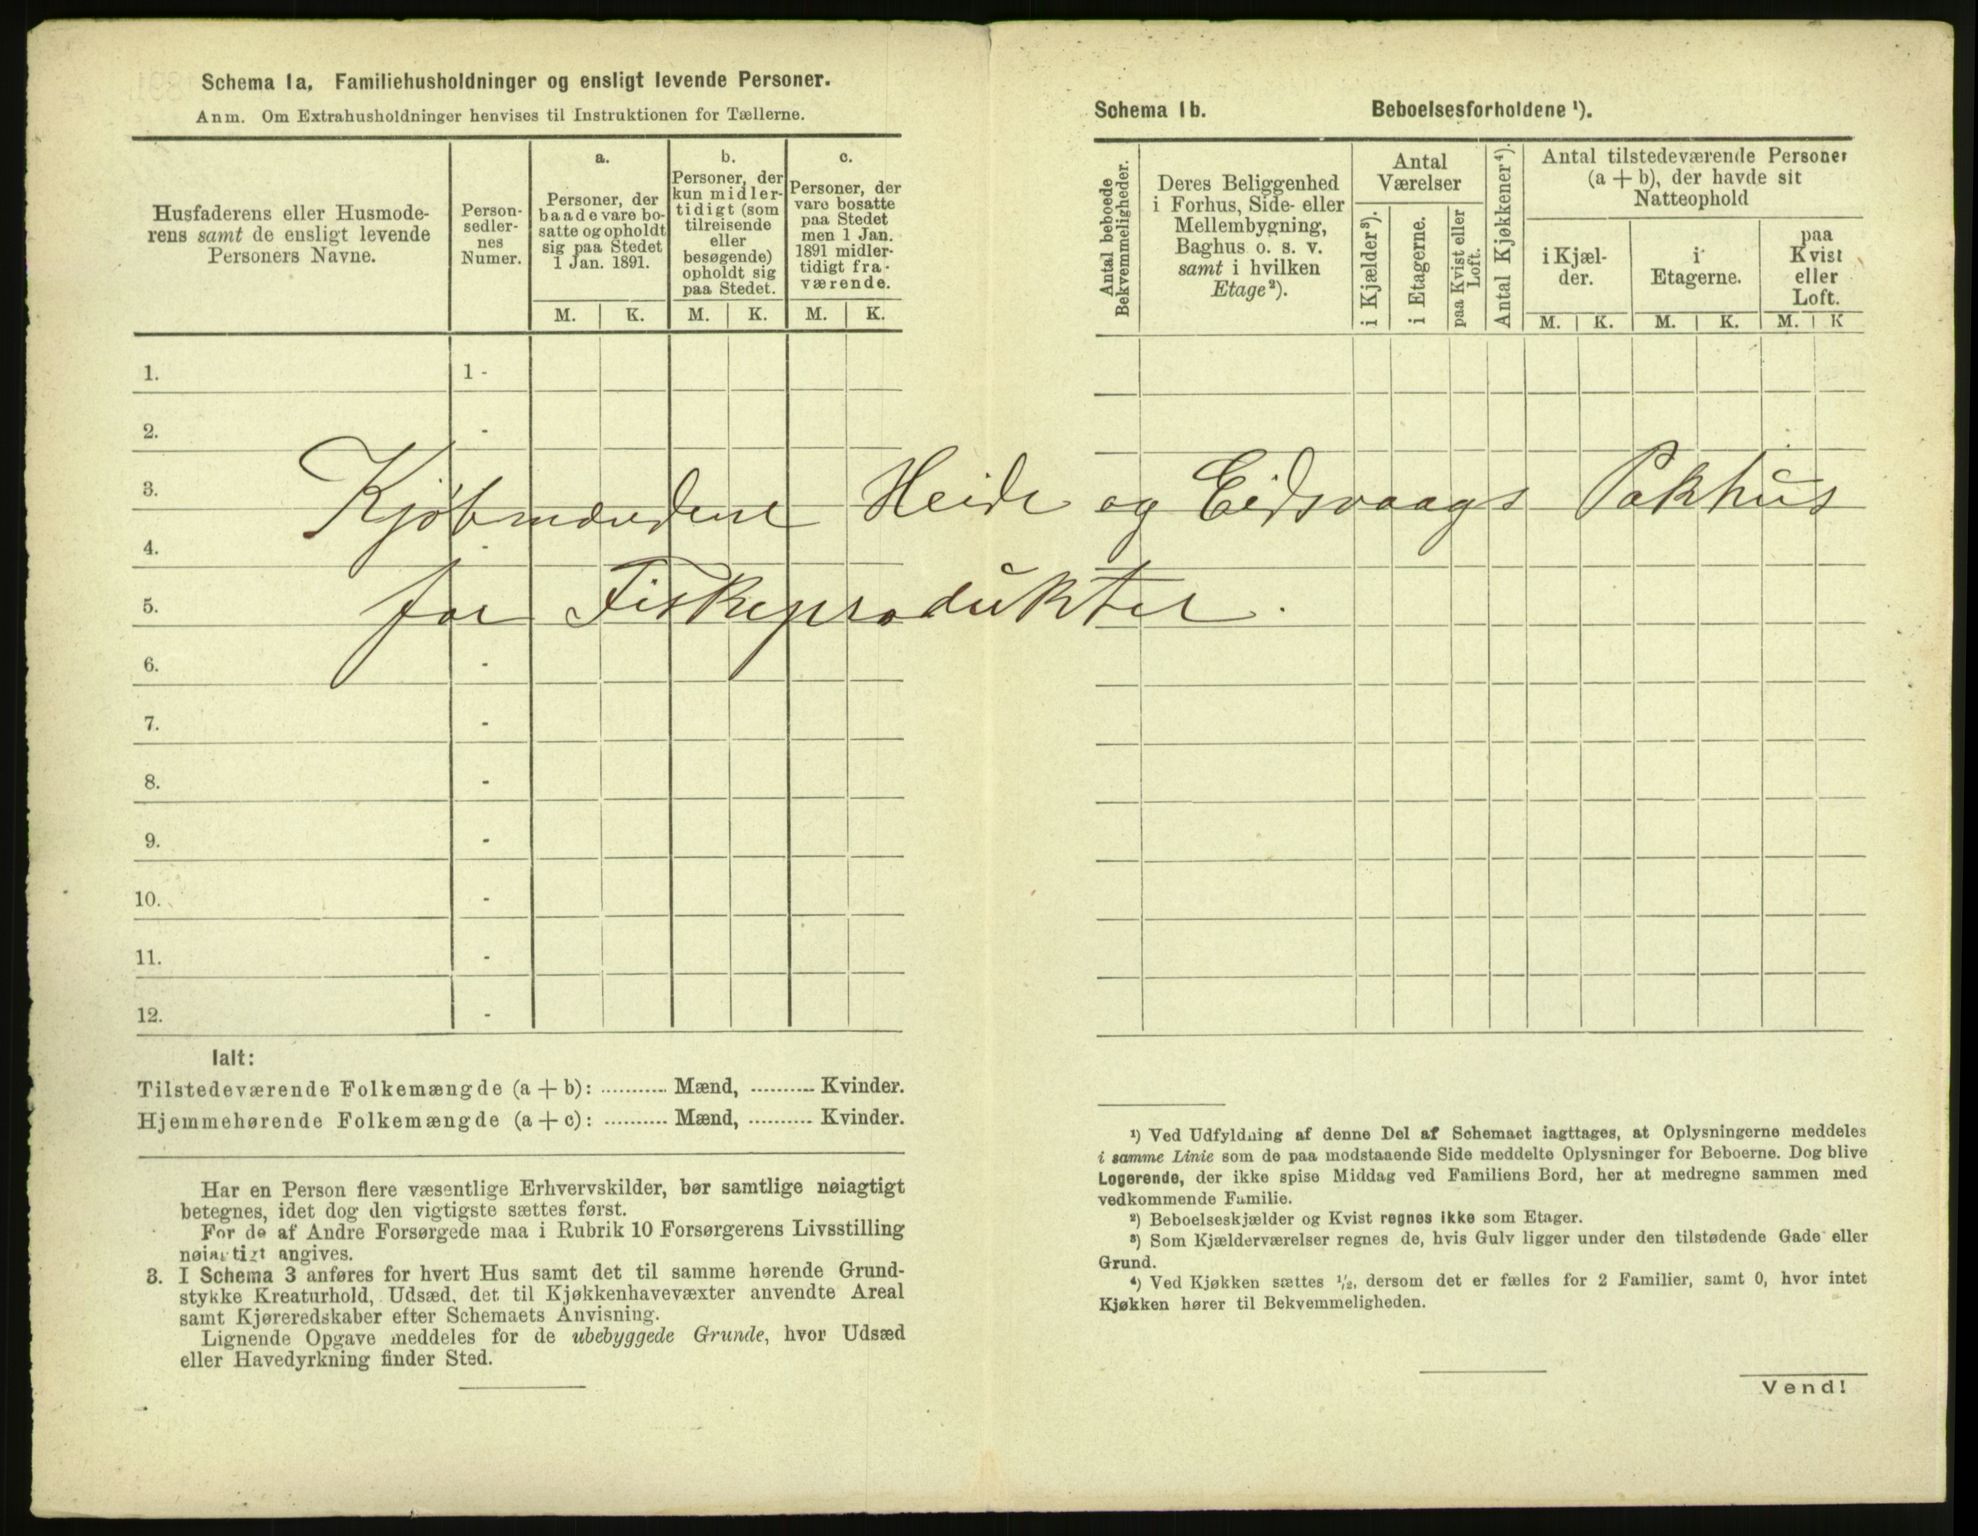 Schema 1a, Familiehusholdninger og ensligt levende Personer.
Anm. Om Extrahusholdninger henvises til Instruktionen for Tællerne.
Husfaderens eller Husmode-
rens samt de ensligt levende
Personers Navne.
Person-
sedler-
nes
Numer.
a.
Personer, der
baade vare bo-
satte og opholdt
sig paa Stedet
1 Jan. 1891.
b.
Personer, der
kun midler-
tidigt (som
tilreisende
eller
besøgende)
opholdt sig
paa Stedet.
c.
Personer, der
vare bosatte
paa Stedet
men 1 Jan.
1891 midler-
tidigt fra-
værende.
M. K. M. K. M. K.
1. 1 -
2. -
3.
4. -
5.
6. -
7. -
8. -
9. -
10. -
11. -
12. -
Ialt:
Tilstedeværende Folkemængde (a + b): ........... Mænd, .......... Kvinder.
Hjemmehørende Folkemængde (a + c): .......... Mænd, .......... Kvinder.
Har en Person flere væsentlige Erhvervskilder, bør samtlige nøiagtigt
betegnes, idet dog den vigtigste sættes først.
For de af Andre Forsørgede maa i Rubrik 10 Forsørgerens Livsstilling
nøiagtigt angives.
3. I Schema 3 anføres for hvert Hus samt det til samme hørende Grund-
stykke Kreaturhold, Udsæd, det til Kjøkkenhavevæxter anvendte Areal
samt Kjøredskaber efter Schemaets Anvisning.
Lignende Opgave meddeles for de ubebyggede Grunde, hvor Udsæd
eller Havedyrkning finder Sted.
Schema 1b. Beboelsesforholdene ¹).
Antal beboede
Bekvemmeligheder.
Deres Beliggenhed
i Forhus, Side- eller
Mellembygning,
Baghus o. s. v.
samt i hvilken
Etage²).
Antal
Værelser
i Kjælder³).
i Etagerne.
paa Kvist eller
Loft.
Antal Kjøkkener⁴).
Antal tilstedeværende Personer
(a + b), der havde sit
Natteophold
i Kjæl-
der.
i
Etagerne.
paa
Kvist
eller
Loft.
M. K. M. K. M. K
Kjøbmændene Heide og Eidsvaags Pakhus
for Fiskeprodukter.
¹) Ved Udfyldning af denne Del af Schemaet iagttages, at Oplysningerne meddeles
i samme Linie som de paa modstaaende Side meddelte Oplysninger for Beboerne. Dog blive
Logerende, der ikke spise Middag ved Familiens Bord, her at medregne sammen med
vedkommende Familie.
²) Beboelseskjælder og Kvist regnes ikke som Etager.
³) Som Kjælderværelser regnes de, hvis Gulv ligger under den tilstødende Gade eller
Grund.
⁴) Ved Kjøkken sættes ¹/₂, dersom det er fælles for 2 Familier, samt 0, hvor intet
Kjøkken hører til Bekvemmeligheden.
Vend!